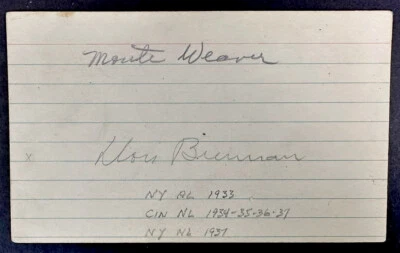 Monte Weaver
x
Don Brennan
NY AL 1933
CIN NL 1934-35-36-37
NY NL 1937